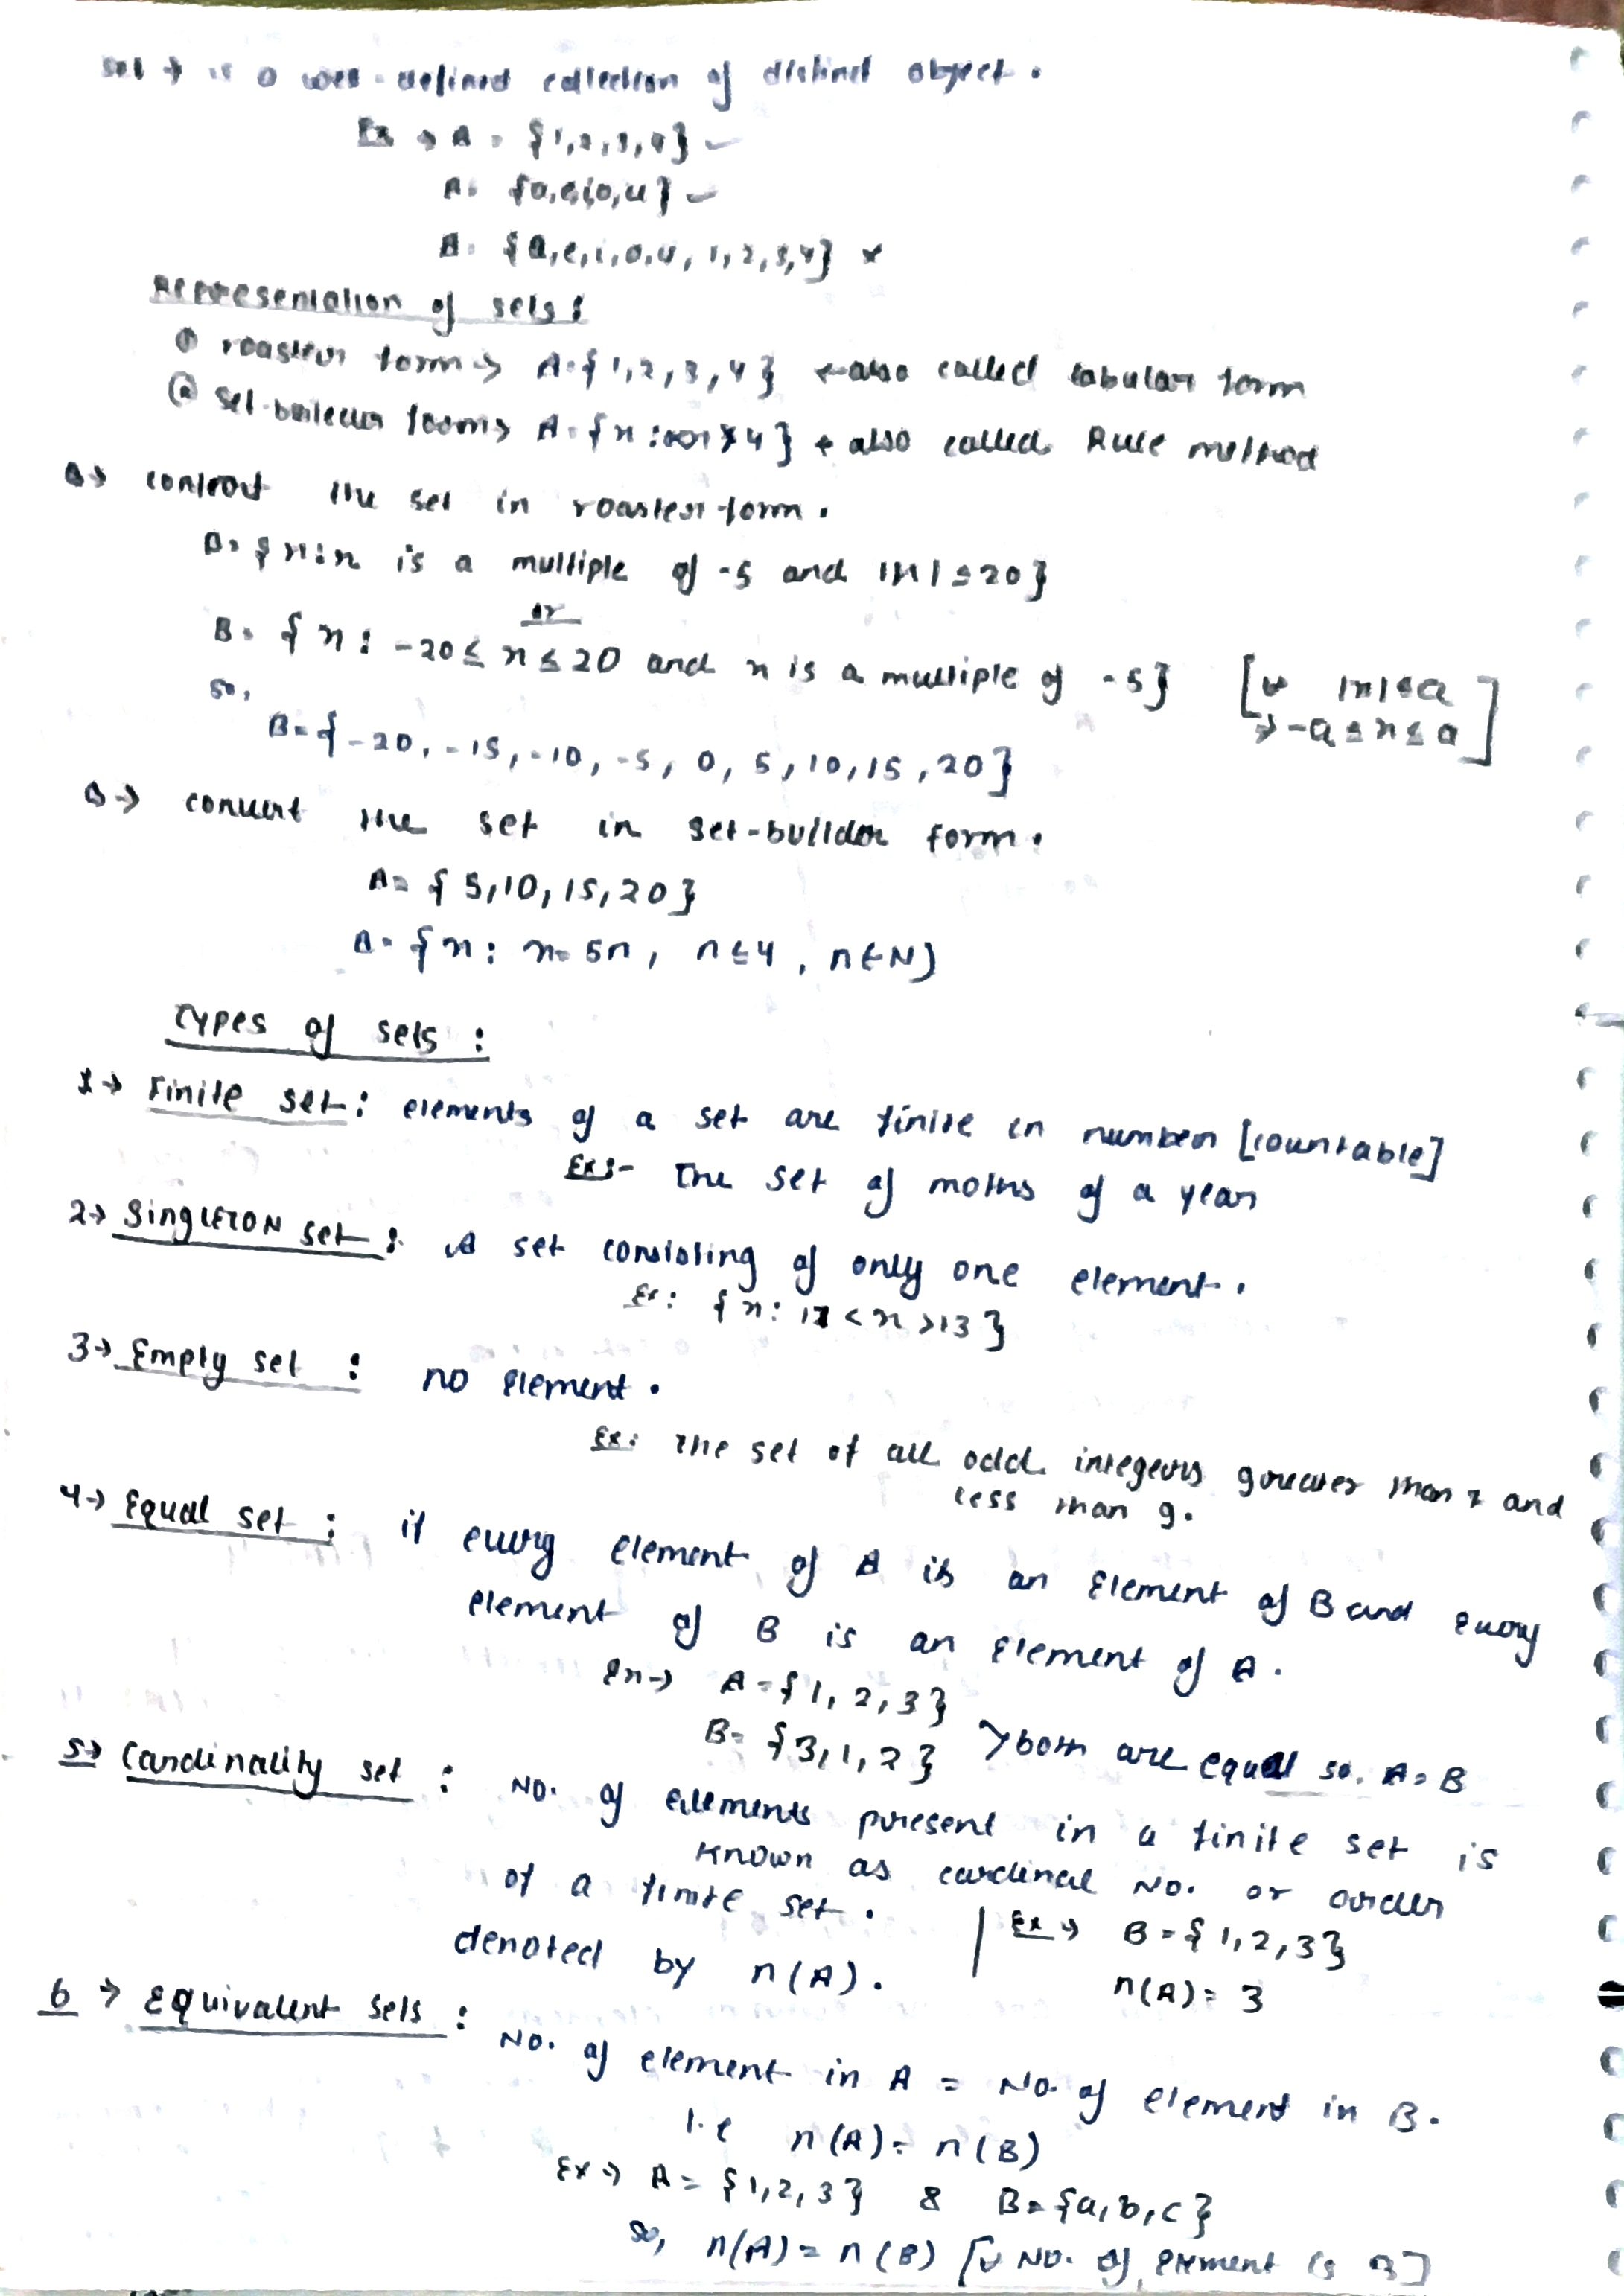 set → is a well-defined collection of distinct object.
Ex → A = {1,2,3,4} ✓
A = {a,e,i,o,u} ✓
A = {a,e,i,o,u, 1,2,3,4} ×
Representation of sets:
① roaster form → A = {1,2,3,4} ← also called tabular form
② set-builder form → A = {x : ≯4} ← also called Rule method
Q→ the set in roaster form.
B = {x:x is a multiple of -5 and |x| ≤ 20}
or
B = {x : -20 ≤ x ≤ 20 and x is a multiple of -5} [∵ |x| ≤ a
→ -a ≤ x ≤ a]
so,
B = {-20, -15, -10, -5, 0, 5, 10, 15, 20}
Q→ convert the set in set-builder form.
A = {5,10,15,20}
A = {x : x = 5n, n ≤ 4, n ∈ N)
Types of sets :
1→ Finite set : elements of a set are finite in number [countable]
Ex:- The set of moths of a year
2→ SingleTON set : A set consisting of only one element.
Ex: {x: 12 < x > 13}
3→ Empty set : no element.
Ex: The set of all odd integers greater than 7 and
less than 9.
4→ Equal set : if every element of A is an element of B and every
element of B is an element of A.
Ex→ A = {1, 2, 3}
B = {3, 1, 2} > both are equal so, A = B
5→ Cardinality set : No. of elements present in a finite set is
known as cardinal No. or order
of a finite set.
denoted by n(A). | Ex → B = {1,2,3}
n(A) = 3
6 → Equivalent sets : No. of element in A = No. of element in B.
i.e n(A) = n(B)
Ex → A = {1,2,3} & B = {a,b,c}
so, n(A) = n(B) [∵ No. of element is 3]